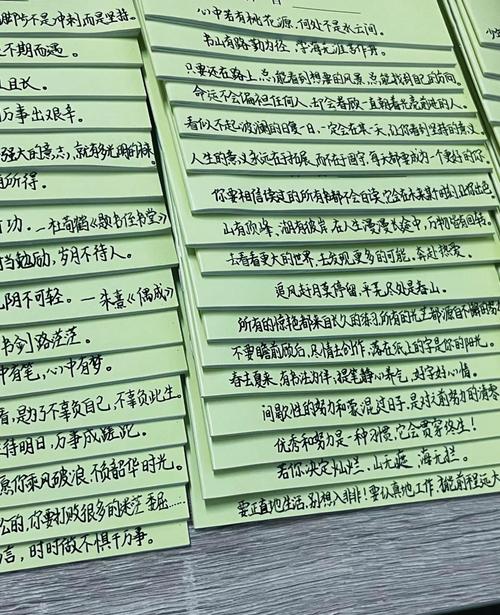 脚踏实地不是冲刺而是坚持。
不期而遇。
且长。
万事出艰辛。
强大的意志，就有多光明的未来
有所得。
功。—杜荀鹤《题书任书堂》
当勉励，岁月不待人。
光阴不可轻。—朱熹《偶成》
书剑路茫茫。
中有笔，心中有梦。
看，是为了不辜负自己，不辜负此生。
待明日，万事成蹉跎。
愿你乘风破浪，不负韶华时光。
么的，你要打败很多的来荏崛……
言，时时做不惧千万事。
心中若有桃花源，何处不是水云间。
书山有路勤为径，学海无涯苦作舟。
只要还在路上，总能看到想要的风景，总能找到自己的方向。
命运不会偏袒任何人，却会眷顾一直朝着光亮前进的人。
看似不起波澜的日复一日，一定会在某一天，让你看到坚持的意义。
人生的意义永远在于拓展，而不在于固守，每天都要成为一个更好的你。
你要相信读过的所有书都不会白读，它会在未来某时刻让你出色
山有顶峰，湖有彼岸，在人生漫漫长途中，万物皆有回转。
去看看更大的世界，去发现更多的可能，奔赴热爱。
乘风赶月莫停留，平芜尽处是春山。
所有的惊艳都来自长久的练习，所有的光芒都源自不懈的努
不要瞻前顾后，尽情去创作，落在纸上的字是你的阳光。
春去夏来，有书法为伴，提笔静心养气，好字好心情。
间歇性的努力和蒙混过日子，是对之前努力的清零
优秀和努力是一种习惯，它会贯穿终生！
若你决定灿烂，山无遮，海无拦。
要正直地生活，别想入非非！要认真地工作，才能前程远大